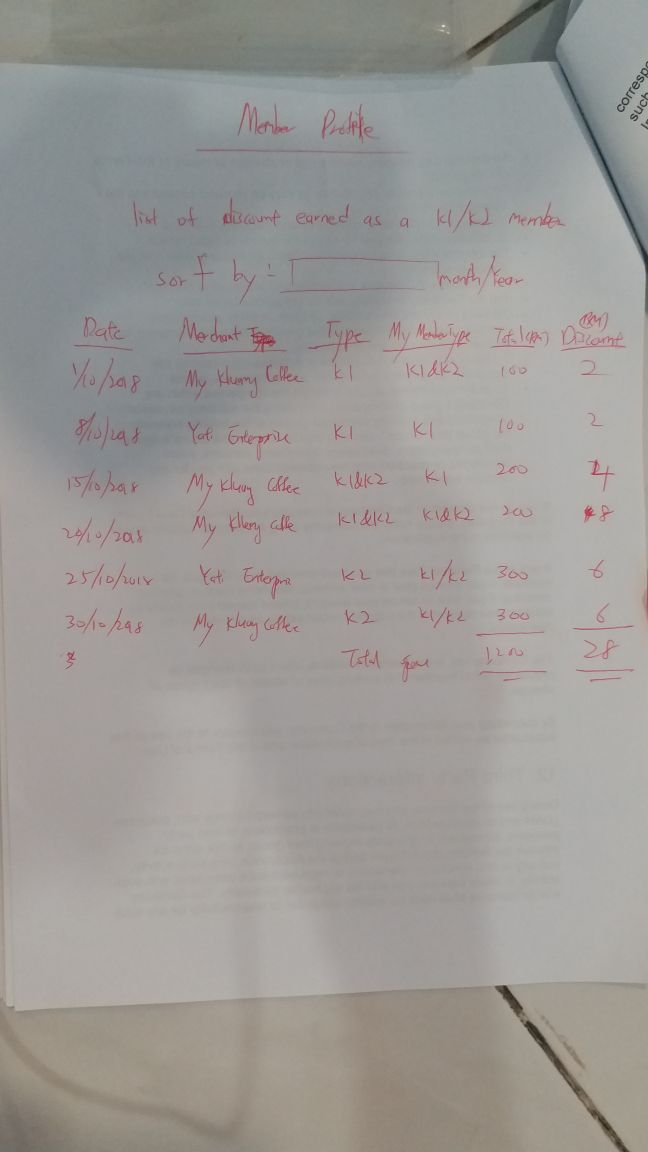 corresp
such
Member Profile
list of discount earned as a K1/K2 member
sort by = month/Year
(RM)
Date Merchant Type My MemberType Total(RM) Discount
1/10/2018 My Kluang Coffee K1 K1&K2 100 2
8/10/2018 Yati Enterprize K1 K1 100 2
15/10/2018 My Kluang Coffee K1&K2 K1 200 4
20/10/2018 My Kluang Coffe K1&K2 K1&K2 200 8
25/10/2018 Yati Enterpri K2 K1/K2 300 6
30/10/2018 My Kluang Coffee K2 K1/K2 300 6
Total 1200 28